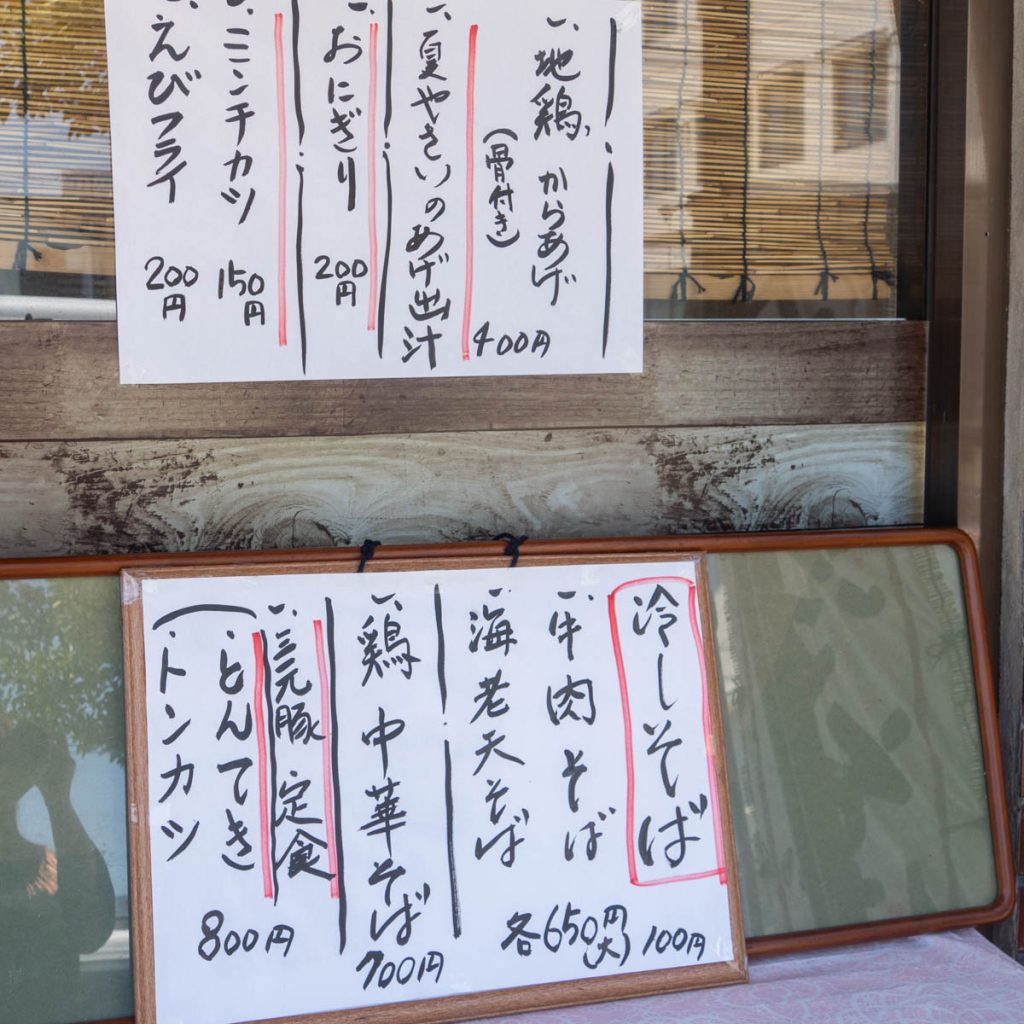 一、地鶏 からあげ
(骨付き)
400円
一、夏やさいのあげ出汁
一、おにぎり
200円
ミニミンチカツ
150円
えびフライ
200円
冷しそば
一、牛肉そば
一、海老天そば
各650円
(大)100円
一、鶏中華そば
700円
一、三元豚 定食
・とんてき
・トンカツ
800円